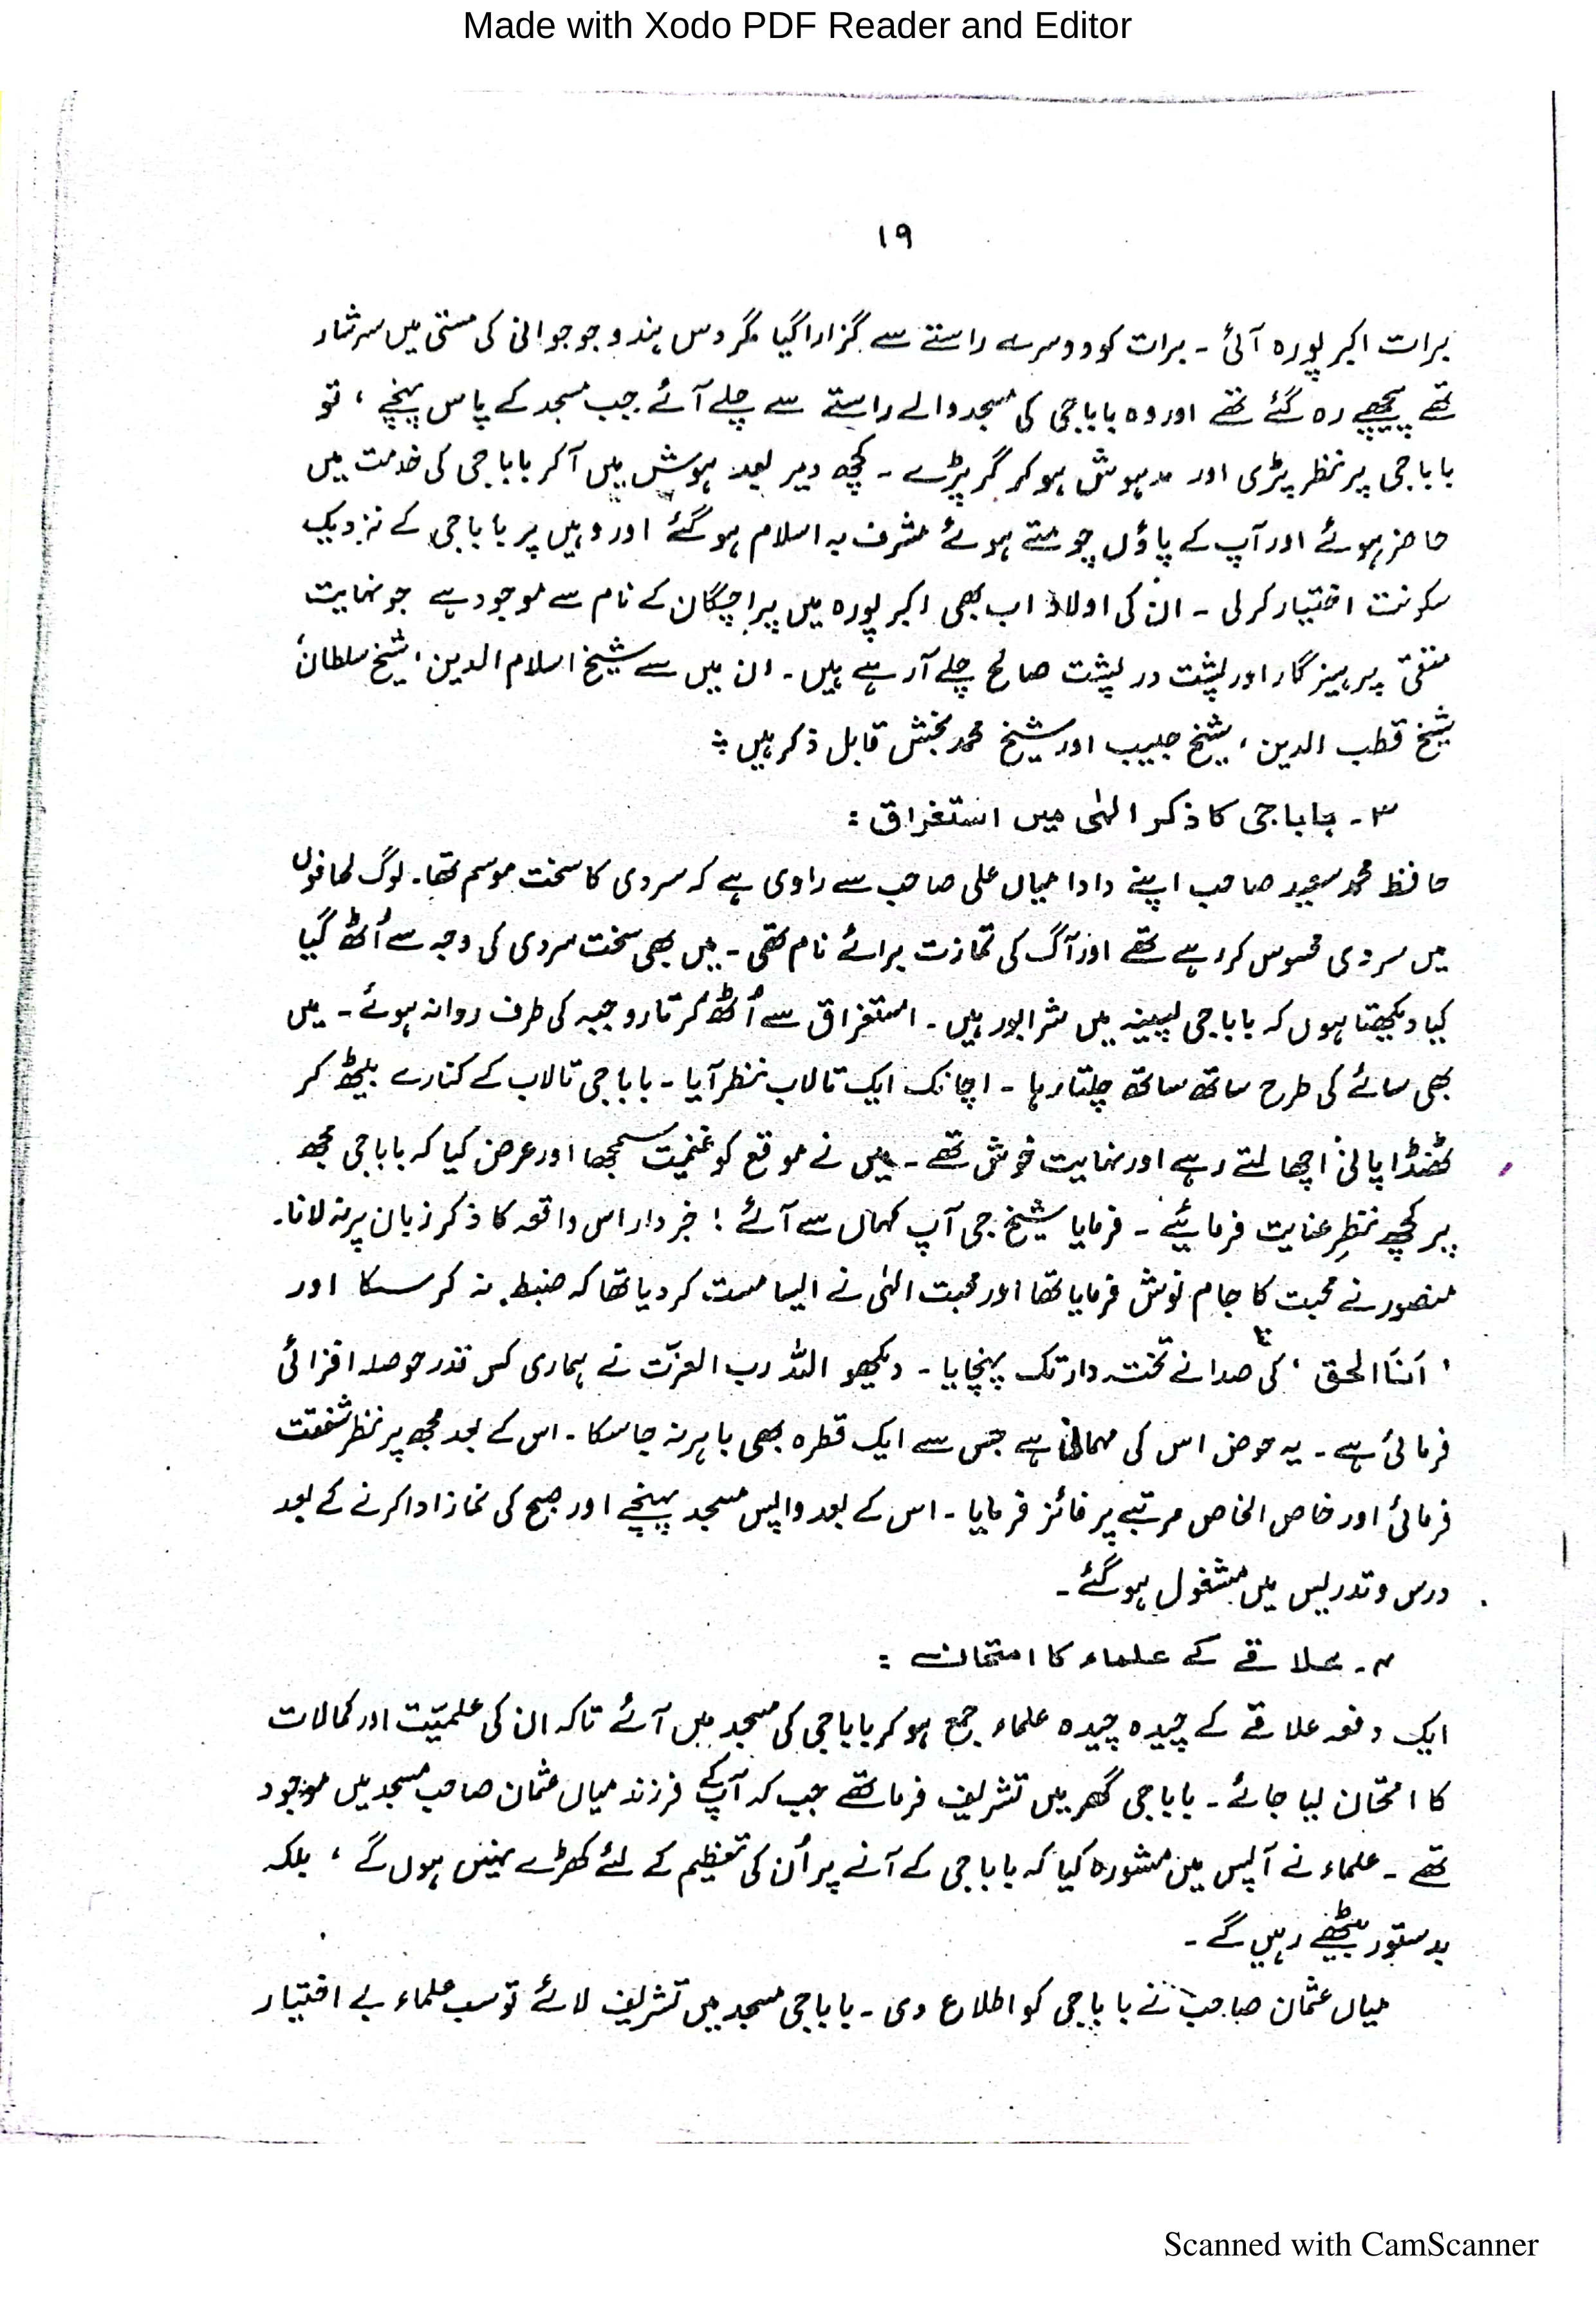 Made with Xodo PDF Reader and Editor
۱۹
برات اکبر پورہ آئی ۔ برات کو دوسرے راستے سے گزارا گیا مگر دس ہندو جو جوانی کی مستی میں سرشار
تھے پیچھے رہ گئے تھے اور وہ باباجی کی مسجد والے راستے سے چلے آئے جب مسجد کے پاس پہنچے ، تو
باباجی پر نظر پڑی اور مدہوش ہو کر گر پڑے ۔ کچھ دیر بعد ہوش میں آکر باباجی کی خدمت میں
حاضر ہوئے اور آپ کے پاؤں چومتے ہوئے مشرف بہ اسلام ہو گئے اور وہیں پر باباجی کے نزدیک
سکونت اختیار کرلی ۔ ان کی اولاد اب بھی اکبر پورہ میں پراچگان کے نام سے موجود ہے جو نہایت
متقی پرہیزگار اور پشت در پشت صالح چلے آرہے ہیں ۔ ان میں سے شیخ اسلام الدین ، شیخ سلطان
شیخ قطب الدین ، شیخ حبیب اور شیخ محمد بخش قابل ذکر ہیں :
۳ ۔ باباجی کا ذکر الہٰی میں استغراق :
حافظ محمد سعید صاحب اپنے دادا میاں علی صاحب سے راوی ہے کہ سردی کا سخت موسم تھا۔ لوگ لحافوں
میں سردی محسوس کر رہے تھے اور آگ کی تمازت برائے نام تھی ۔ میں بھی سخت سردی کی وجہ سے اُٹھ گیا
کیا دیکھتا ہوں کہ باباجی پسینہ میں شرابور ہیں ۔ استغراق سے اُٹھ کر تاروجبہ کی طرف روانہ ہوئے ۔ میں
بھی سائے کی طرح ساتھ ساتھ چلتا رہا ۔ اچانک ایک تالاب نظر آیا ۔ باباجی تالاب کے کنارے بیٹھ کر
ٹھنڈا پانی اچھالتے رہے اور نہایت خوش تھے ۔ میں نے موقع کو غنیمت سمجھا اور عرض کیا کہ باباجی مجھ
پر کچھ نظرِ عنایت فرمائیے ۔ فرمایا شیخ جی آپ کہاں سے آئے ! خبردار اس واقعہ کا ذکر زبان پر نہ لانا۔
منصور نے محبت کا جام نوش فرمایا تھا اور محبت الہٰی نے ایسا مست کر دیا تھا کہ ضبط نہ کر سکا اور
' اَنَا الحق ' کی صدا نے تختہ دار تک پہنچایا ۔ دیکھو اللہ رب العزّت نے ہماری کس قدر حوصلہ افزائی
فرمائی ہے ۔ یہ حوض اس کی مہمانی ہے جس سے ایک قطرہ بھی باہر نہ جا سکا ۔ اس کے بعد مجھ پر نظر شفقت
فرمائی اور خاص الخاص مرتبے پر فائز فرمایا ۔ اس کے بعد واپس مسجد پہنچے اور صبح کی نماز ادا کرنے کے بعد
درس و تدریس میں مشغول ہو گئے ۔
۴ ۔ علاقے کے علماء کا امتحان :
ایک دفعہ علاقے کے چیدہ چیدہ علماء جمع ہو کر باباجی کی مسجد میں آئے تاکہ ان کی علمیّت اور کمالات
کا امتحان لیا جائے ۔ باباجی گھر میں تشریف فرما تھے جب کہ آپ کے فرزند میاں عثمان صاحب مسجد میں موجود
تھے ۔ علماء نے آپس میں مشورہ کیا کہ باباجی کے آنے پر اُن کی تعظیم کے لئے کھڑے نہیں ہوں گے ، بلکہ
بدستور بیٹھے رہیں گے ۔
میاں عثمان صاحب نے باباجی کو اطلاع دی ۔ باباجی مسجد میں تشریف لائے تو سب علماء بے اختیار
Scanned with CamScanner